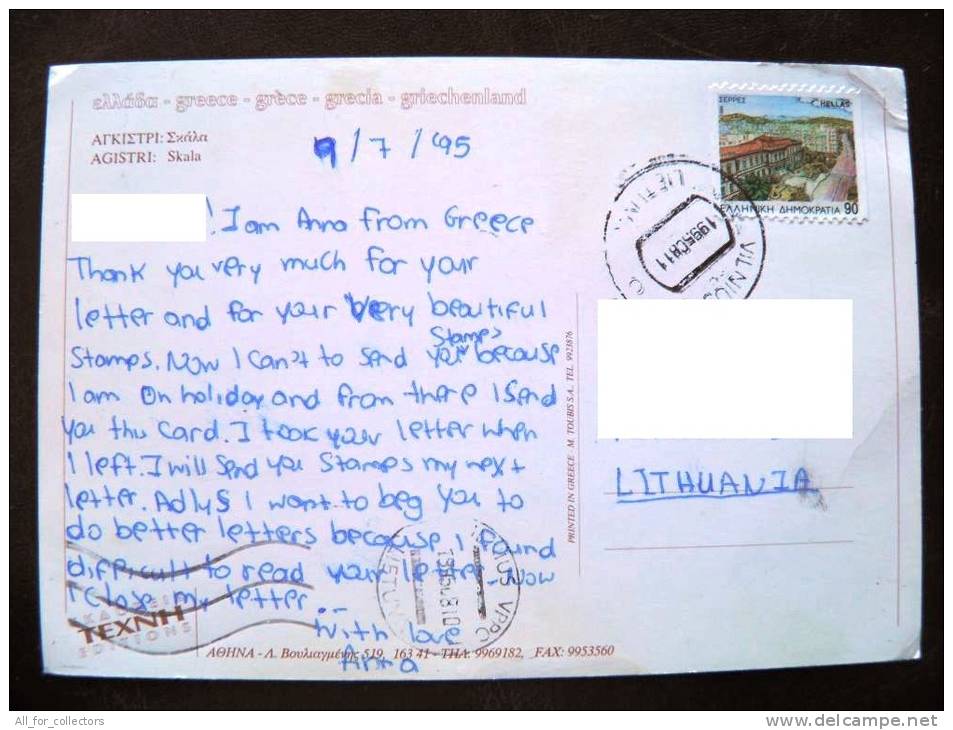 ελλάδα - greece - grèce - grecia - griechenland
ΑΓΚΙΣΤΡΙ: Σκάλα
AGISTRI: Skala
9/7/95
! I am Anna from Greece
Thank you very much for your
letter and for your very beautiful
Stamps. Now I can't to send you Stamps because
I am on holiday and from there I send
you this card. I took your letter when
I left. I will send you stamps my next
letter. I want to beg you to
do better letters because I found
difficult to read your letter. Now
I close my letter...
With love
Anna
ΕΚΔΟΣΕΙΣ
ΤΕΧΝΗ
EDITIONS
ΑΘΗΝΑ - Λ. Βουλιαγμένης 519, 163 41 - ΤΗΛ. 9969182, FAX: 9953560
PRINTED IN GREECE M. TOUBIS S.A., TEL. 9923876
ΣΕΡΡΕΣ
HELLAS
ΕΛΛΗΝΙΚΗ ΔΗΜΟΚΡΑΤΙΑ 90
VILNIUS
LITHUANIA
All_for_collectors
www.delcampe.net